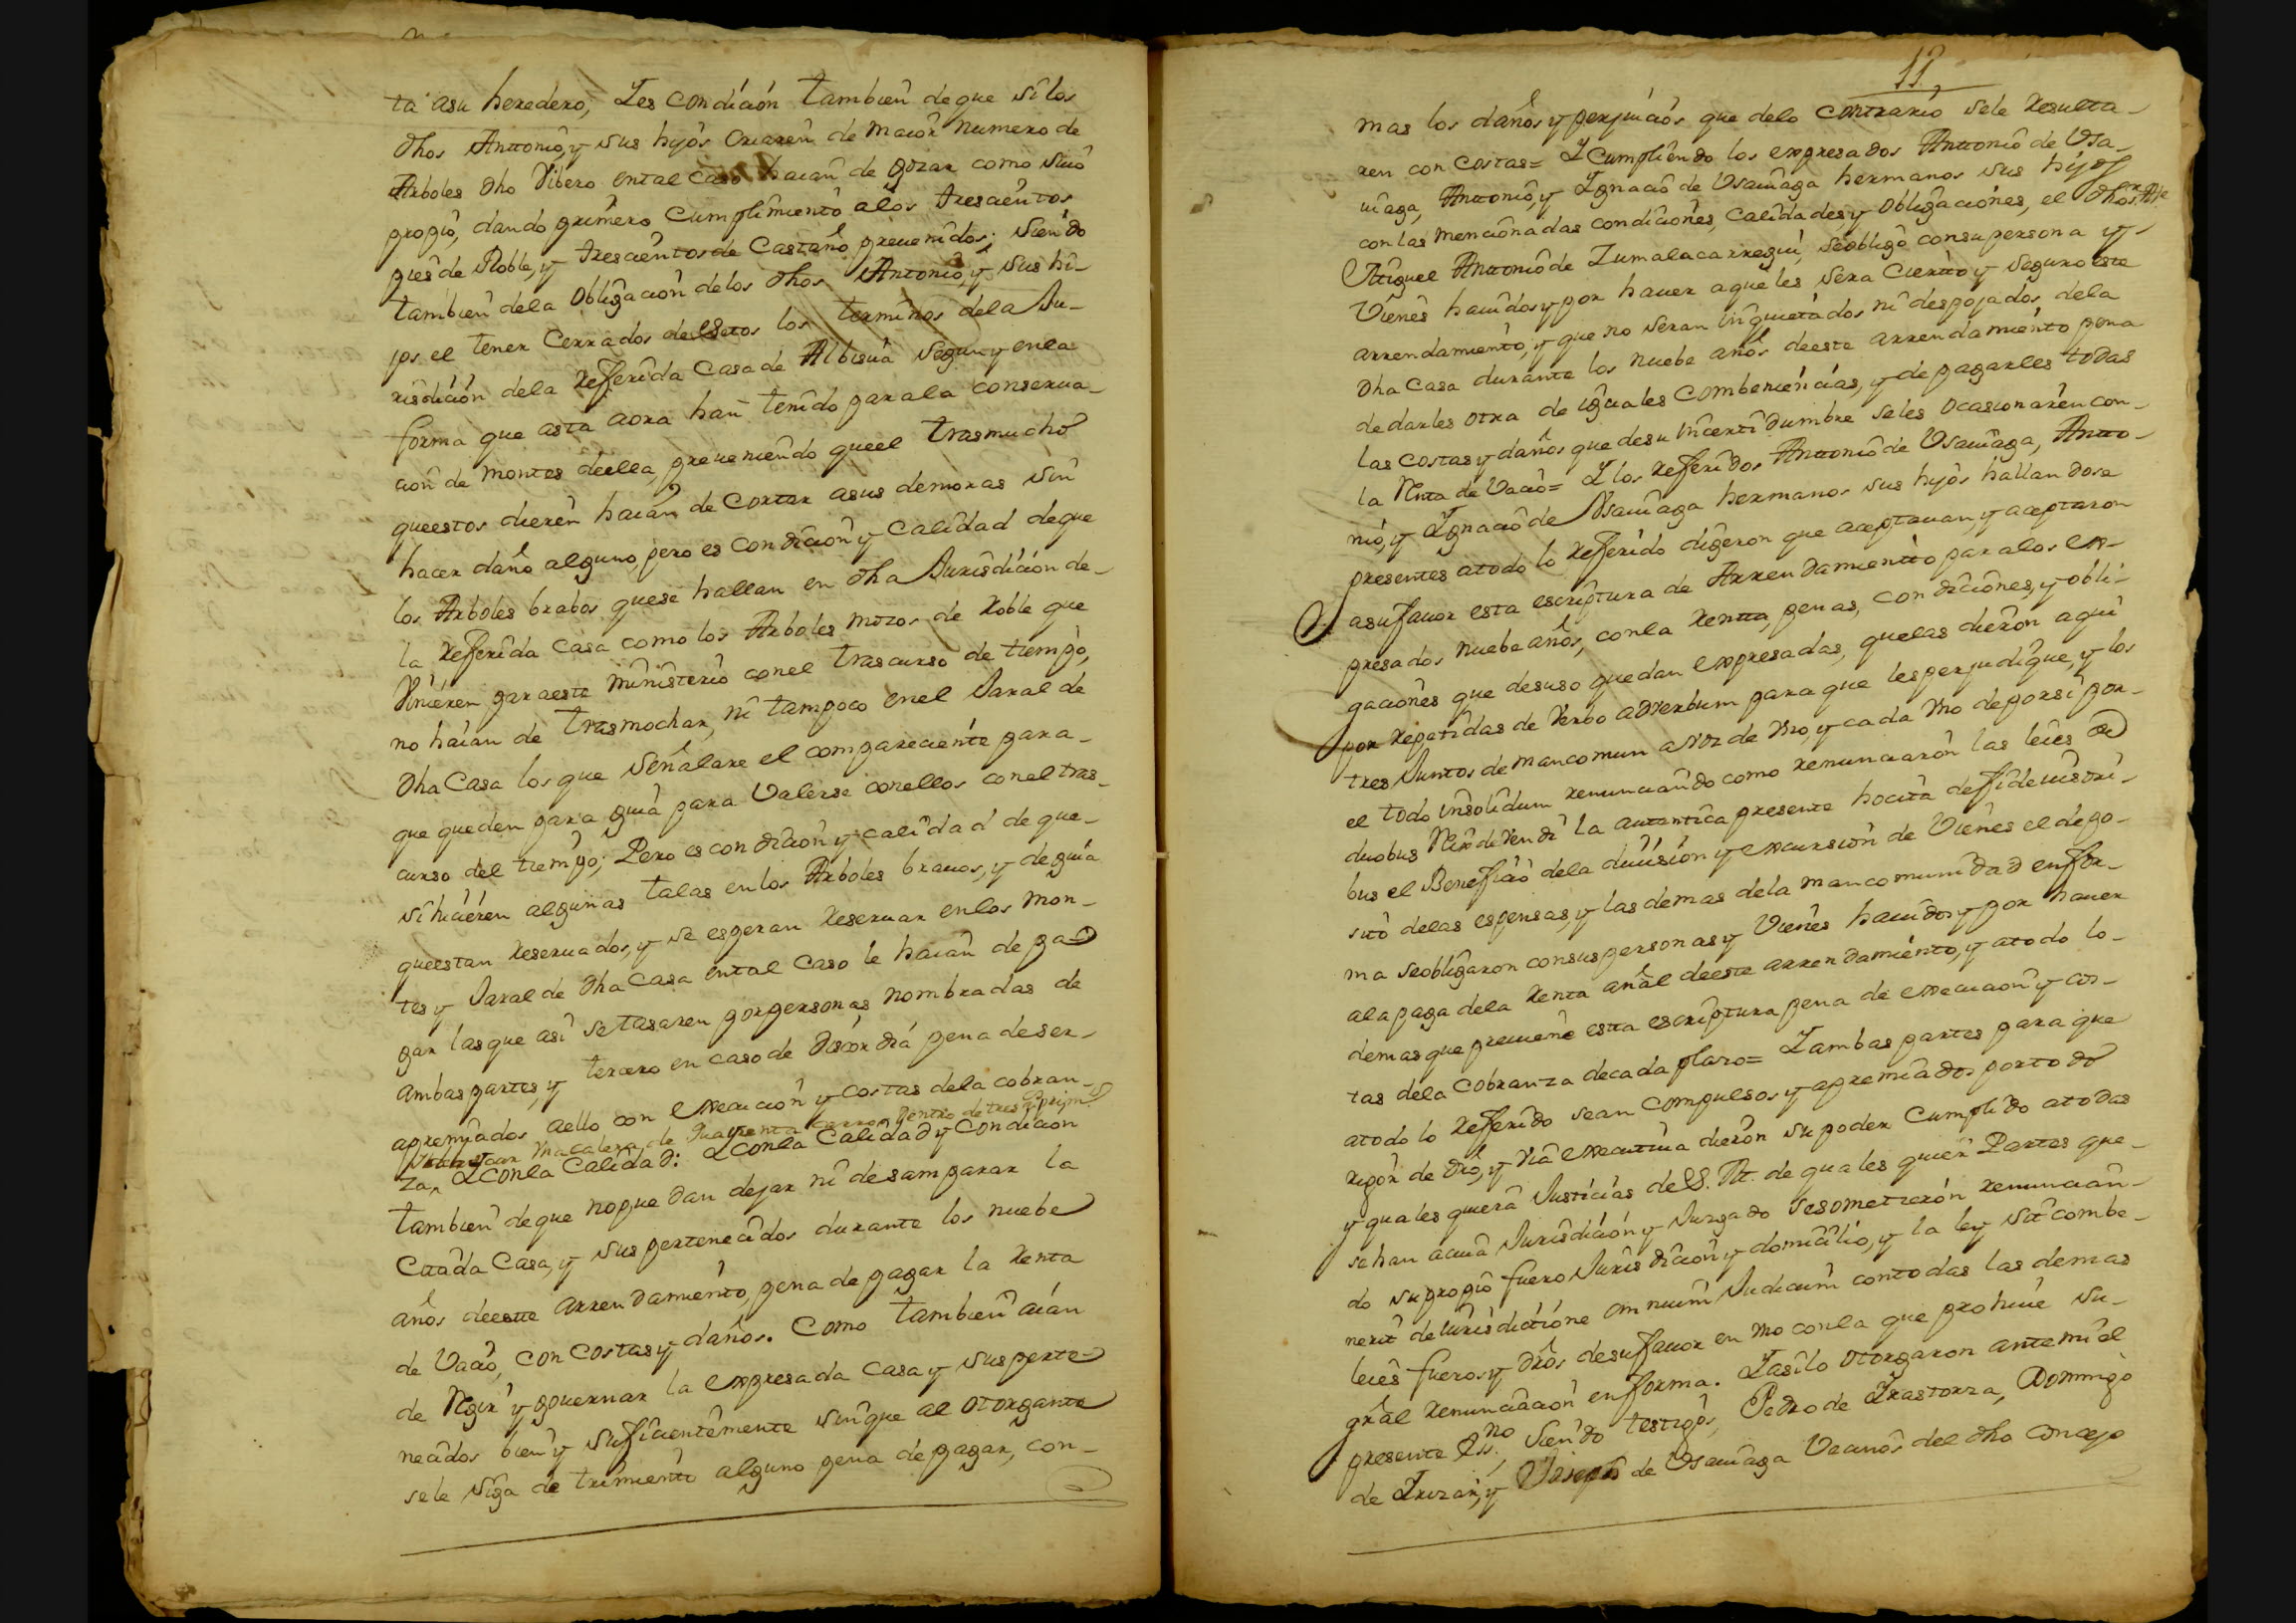 ta asu heredero, Y es condicion tambien de que si los
dhos Anttonio, y sus hijos criaren de maior numero de
Arboles dho Vibero ental caso haian de gozar como suio
propio, dando primero cumplimiento alos trescientos
pies de Roble, y trescientos de Castaño prevenidos; siendo
tambien dela obligacion delos dhos Antonio, y sus hi-
jos el tener cerrados de setos los terminos dela Ju-
risdicion dela Refferida Casa de Albisua segun y enla
forma que asta aora han tenido para la conserua-
cion de montes deella, preueniendo queel trasmucho
queestos dieren haian de cortar asus demoras sin
hacer daño alguno, pero es condicion y calidad deque
los Arboles brabos quese hallan en dha Jurisdicion de-
la Refferida casa como los Arboles mozos de Roble que
Vinieren para este ministerio conel trascurso de tiempo,
no haian de trasmochar, ni tampoco enel Jaral de
dha Casa los que señalare el compareciente para-
que queden para guia para Valerse conellos conel tras-
curso del tiempo; Pero es condicion y calidad de que-
si hicieren algunas talas en los Arboles brauos, y de guia
queestan Reseruados, y se esperan Reseruar enlos mon-
tes y Jaral de dha Casa ental caso le haian de pa-
gar las que asi se tasaren por personas nombradas de
ambas partes, y tercero en caso de discordia pena de ser-
apremiados aello con execucion y costas dela cobran-
dentro de tres primos
za, Y conla Calidad: Y conla Calidad y condicion
tambien de que no puedan dejar ni desamparar la
Citada Casa, y sus pertenecidos durante los nuebe
años deeste arrendamiento, pena de pagar la Renta
de Vacio, con costas y daños. Como tambien aian
de Regir y gouernar la expresada casa y sus perte-
necidos bien y sufficientemente sin que al otorgante
sele siga detrimiento alguno pena de pagar, con-
11.
mas los daños y perjuicios que delo contrario sele Resulta-
ren con costas= Y cumpliendo los expresados Anttonio de Usa-
uiaga, Anttonio, y Ygnacio de Usauiaga hermanos sus hijos
con las mencionadas condiciones, calidades, y obligaciones, el dho
Miguel Anttonio de Zumalacarregui, se obligo con su persona y
Vienes hauidos y por hauer aque les sera cierto y seguro este
arrendamiento, y que no seran inquietados ni despojados dela
dha Casa durante los nuebe años deeste arrendamiento pena
de darles otra de iguales combeniencias, y de pagarles todas
las costas y daños que de su incertidumbre seles ocasionaren con-
la Renta de Vacio= Y los Refferidos Anttonio de Usauiaga, Antto-
nio, y Ygnacio de Usauiaga hermanos sus hijos hallandose
presentes atodo lo Refferido digeron que aceptauan, y aceptaron
asu fauor esta escriptura de Arrendamiento para los ex-
presados nuebe años, conla Renta, penas, condiciones, y obli-
gaciones que desuso quedan expresadas, quelas dieron aqui
por Repetidas de Verbo adverbum para que les perjudique, y los
tres Juntos de mancomun a voz de Uno, y cada Uno de por si por-
el todo insolidum renunciando como renunciaron las leies de
duobus Rex de Vendi la autentica presente hocita deffidejusori-
bus el Beneficio dela diuision y excursion de Vienes el depo-
sito delas espensas, y las demas dela mancomunidad enfor-
ma se obligaron con sus personas y Vienes hauidos y por hauer
ala paga dela Renta anal deeste arrendamiento, y atodo lo-
demas que preuiene esta escriptura pena de execucion y cos-
tas dela Cobranza decada plazo= Y ambas partes para que
atodo lo Refferido sean compulsos y apremiados por todo
rigor de dro, y Via executiua dieron su poder cumplido atodas
y quales quiera Justicias de S. M. de quales quier Partes que-
sehan acuia Jurisdicion y Juzgado se sometieron renuncian-
do su propio fuero Jurisdicion y domicilio, y la ley sit combe-
nerit de Jurisdictione omnium Judicum con todas las demas
leies fueros y dros de su fauor en Uno conla que prohiue su-
gral renunciacion enforma. Y asi lo otorgaron ante mi el
presente Essno, siendo testigos, Pedro de Yrastorza, Domingo
de Yrizar, y Joseph de Usauiaga Vecinos del dho Concejo